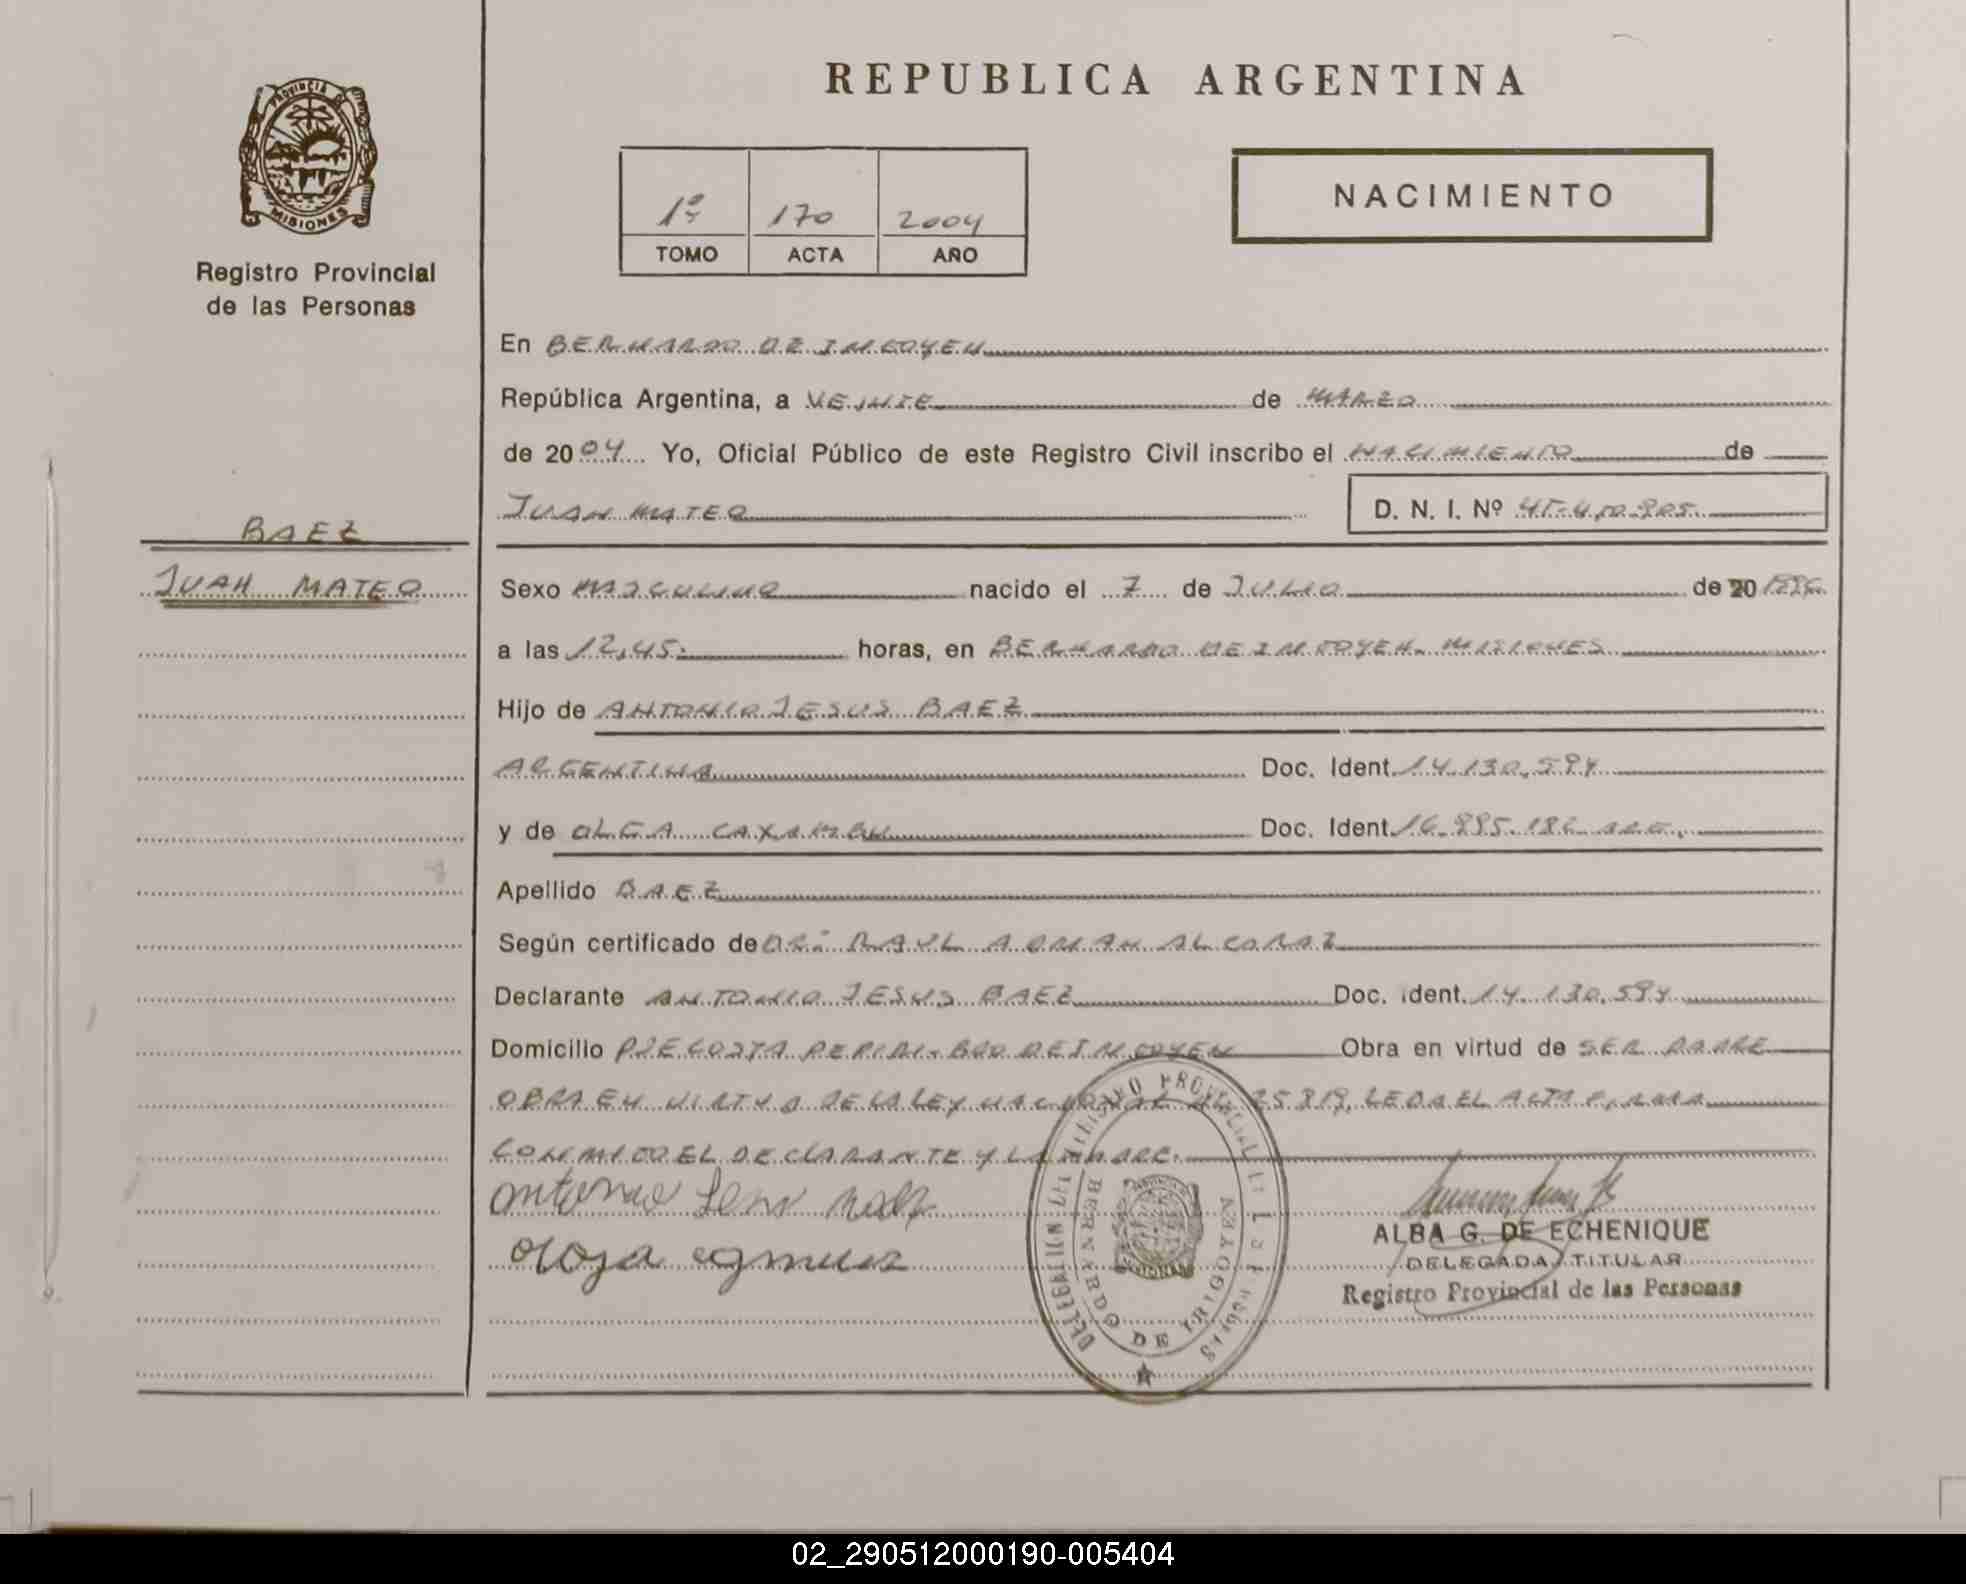 REPUBLICA ARGENTINA
PROVINCIA DE
MISIONES
Registro Provincial
de las Personas
1º 170 2004
TOMO ACTA AÑO
NACIMIENTO
En BERNARDO DE IRIGOYEN
República Argentina, a VEINTE de MARZO
de 2004 Yo, Oficial Público de este Registro Civil inscribo el NACIMIENTO de
JUAN MATEO D. N. I. Nº
BAEZ
JUAN MATEO
Sexo MASCULINO nacido el 7 de JULIO de 20
a las 12,45. horas, en BERNARDO DE IRIGOYEN. MISIONES
Hijo de ANTONIO JESUS BAEZ
ARGENTINA Doc. Ident. 14.130.594
y de OLGA Doc. Ident. ARG.
Apellido BAEZ
Según certificado de DR: RAUL ADRIAN ALCARAZ
Declarante ANTONIO JESUS BAEZ Doc. Ident. 14.130.594
Domicilio PJE COSTA PEPIRI. BDO DE IRIGOYEN Obra en virtud de SER PADRE
OBRA EN VIRTUD DE LA LEY NACIONAL 25.819, LEDA EL ACTA FIRMA
CONMIGO EL DECLARANTE Y LA MADRE.
DELEGACION DEL REGISTRO PROVINCIAL DE LAS PERSONAS
BERNARDO DE IRIGOYEN
ALBA G. DE ECHENIQUE
DELEGADA TITULAR
Registro Provincial de las Personas
02_290512000190-005404